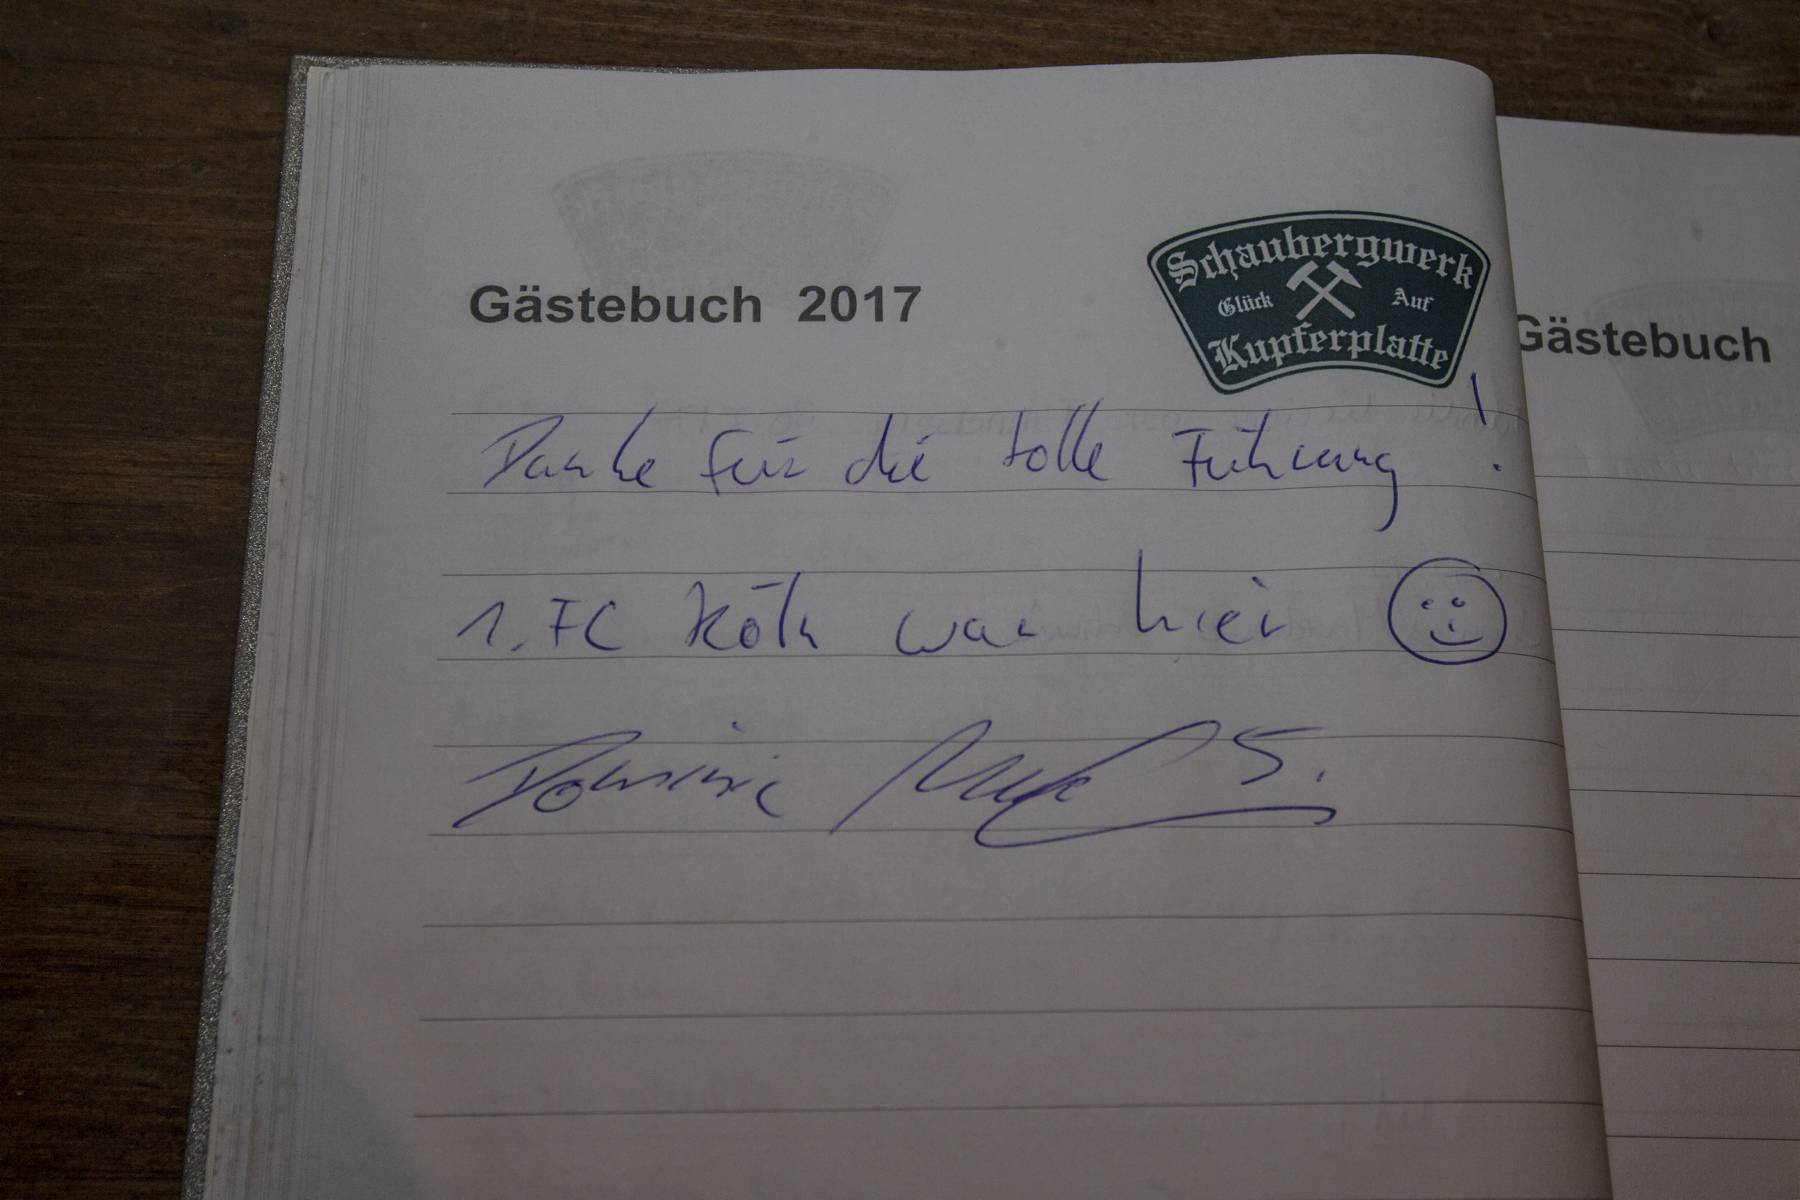 Gästebuch 2017
Schaubergwerk
Glück Auf
Kupferplatte
Gästebuch
Danke für die tolle Führung!
1. FC Köln war hier
Dominic